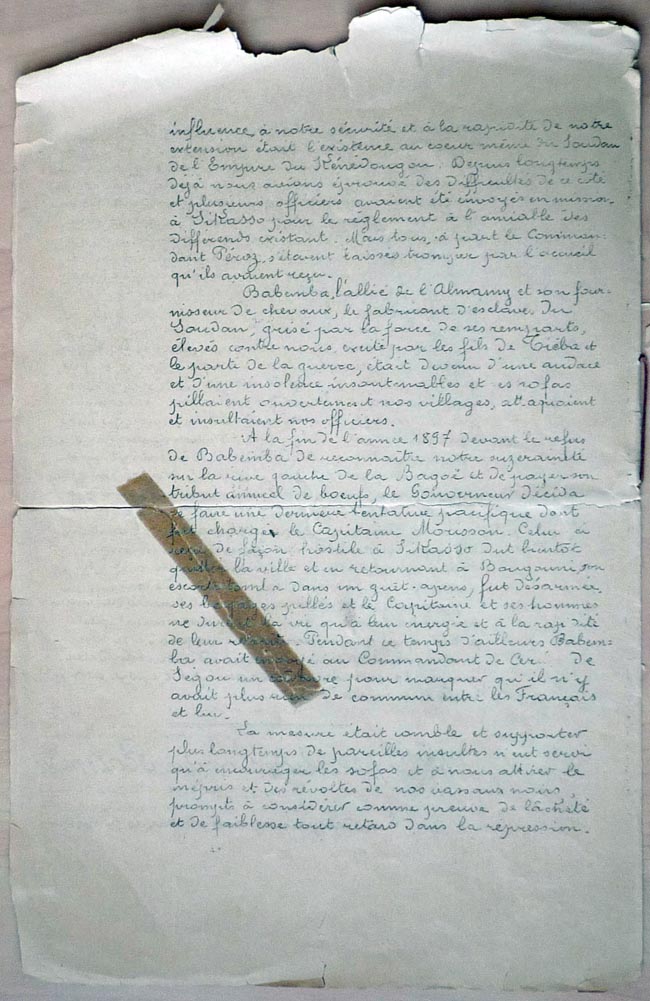 influence à notre sécurité et à la rapidité de notre
extension était l'existence au coeur même du Soudan
de l'Empire du Kénédougou. Depuis longtemps
déjà nous avions éprouvé des difficultés de ce côté
et plusieurs officiers avaient été envoyés en mission
à Sikasso pour le réglement à l'amiable des
différends existant. Mais tous, à part le Comman-
dant Péroz, s'étaient laissés tromper par l'accueil
qu'ils avaient reçu.
Babemba, l'allié de l'Almamy et son four-
nisseur de chevaux, le fabricant d'esclave du
Soudan, grisé par la force de ses remparts,
élevés contre nous, excité par les fils de Tiéba et
le parti de la guerre, était devenu d'une audace
et d'une insolence insoutenables et ses sofas
pillaient ouvertement nos villages, attaquaient
et insultaient nos officiers.
A la fin de l'année 1897 devant le refus
de Babemba de reconnaître notre suzeraineté
sur la rive gauche de la Bagoé et de payer son
tribut annuel de boeufs, le Gouverneur décida
de faire une dernière tentative pacifique dont
fut chargé le Capitaine Morisson. Celui ci
reçu de façon hostile à Sikasso dut bientôt
quitter la ville et en retournant à Bougouni son
escorte tomba dans un guêt-apens, fut désarmée,
ses bagages pillés et le Capitaine et ses hommes
ne durent la vie qu'à leur énergie et à la rapidité
de leur retraite. Pendant ce temps d'ailleurs Babem-
ba avait envoyé au Commandant de Cer de
Ségou un pour marquer qu'il n'y
avait plus rien de commun entre les Français
et lui.
La mesure était comble et supporter
plus longtemps de pareilles insultes n'eut servi
qu'à encourager les sofas et à nous attirer le
mépris et des révoltes de nos vassaux noirs
prompts à considérer comme preuve de lâcheté
et de faiblesse tout retard dans la répression.